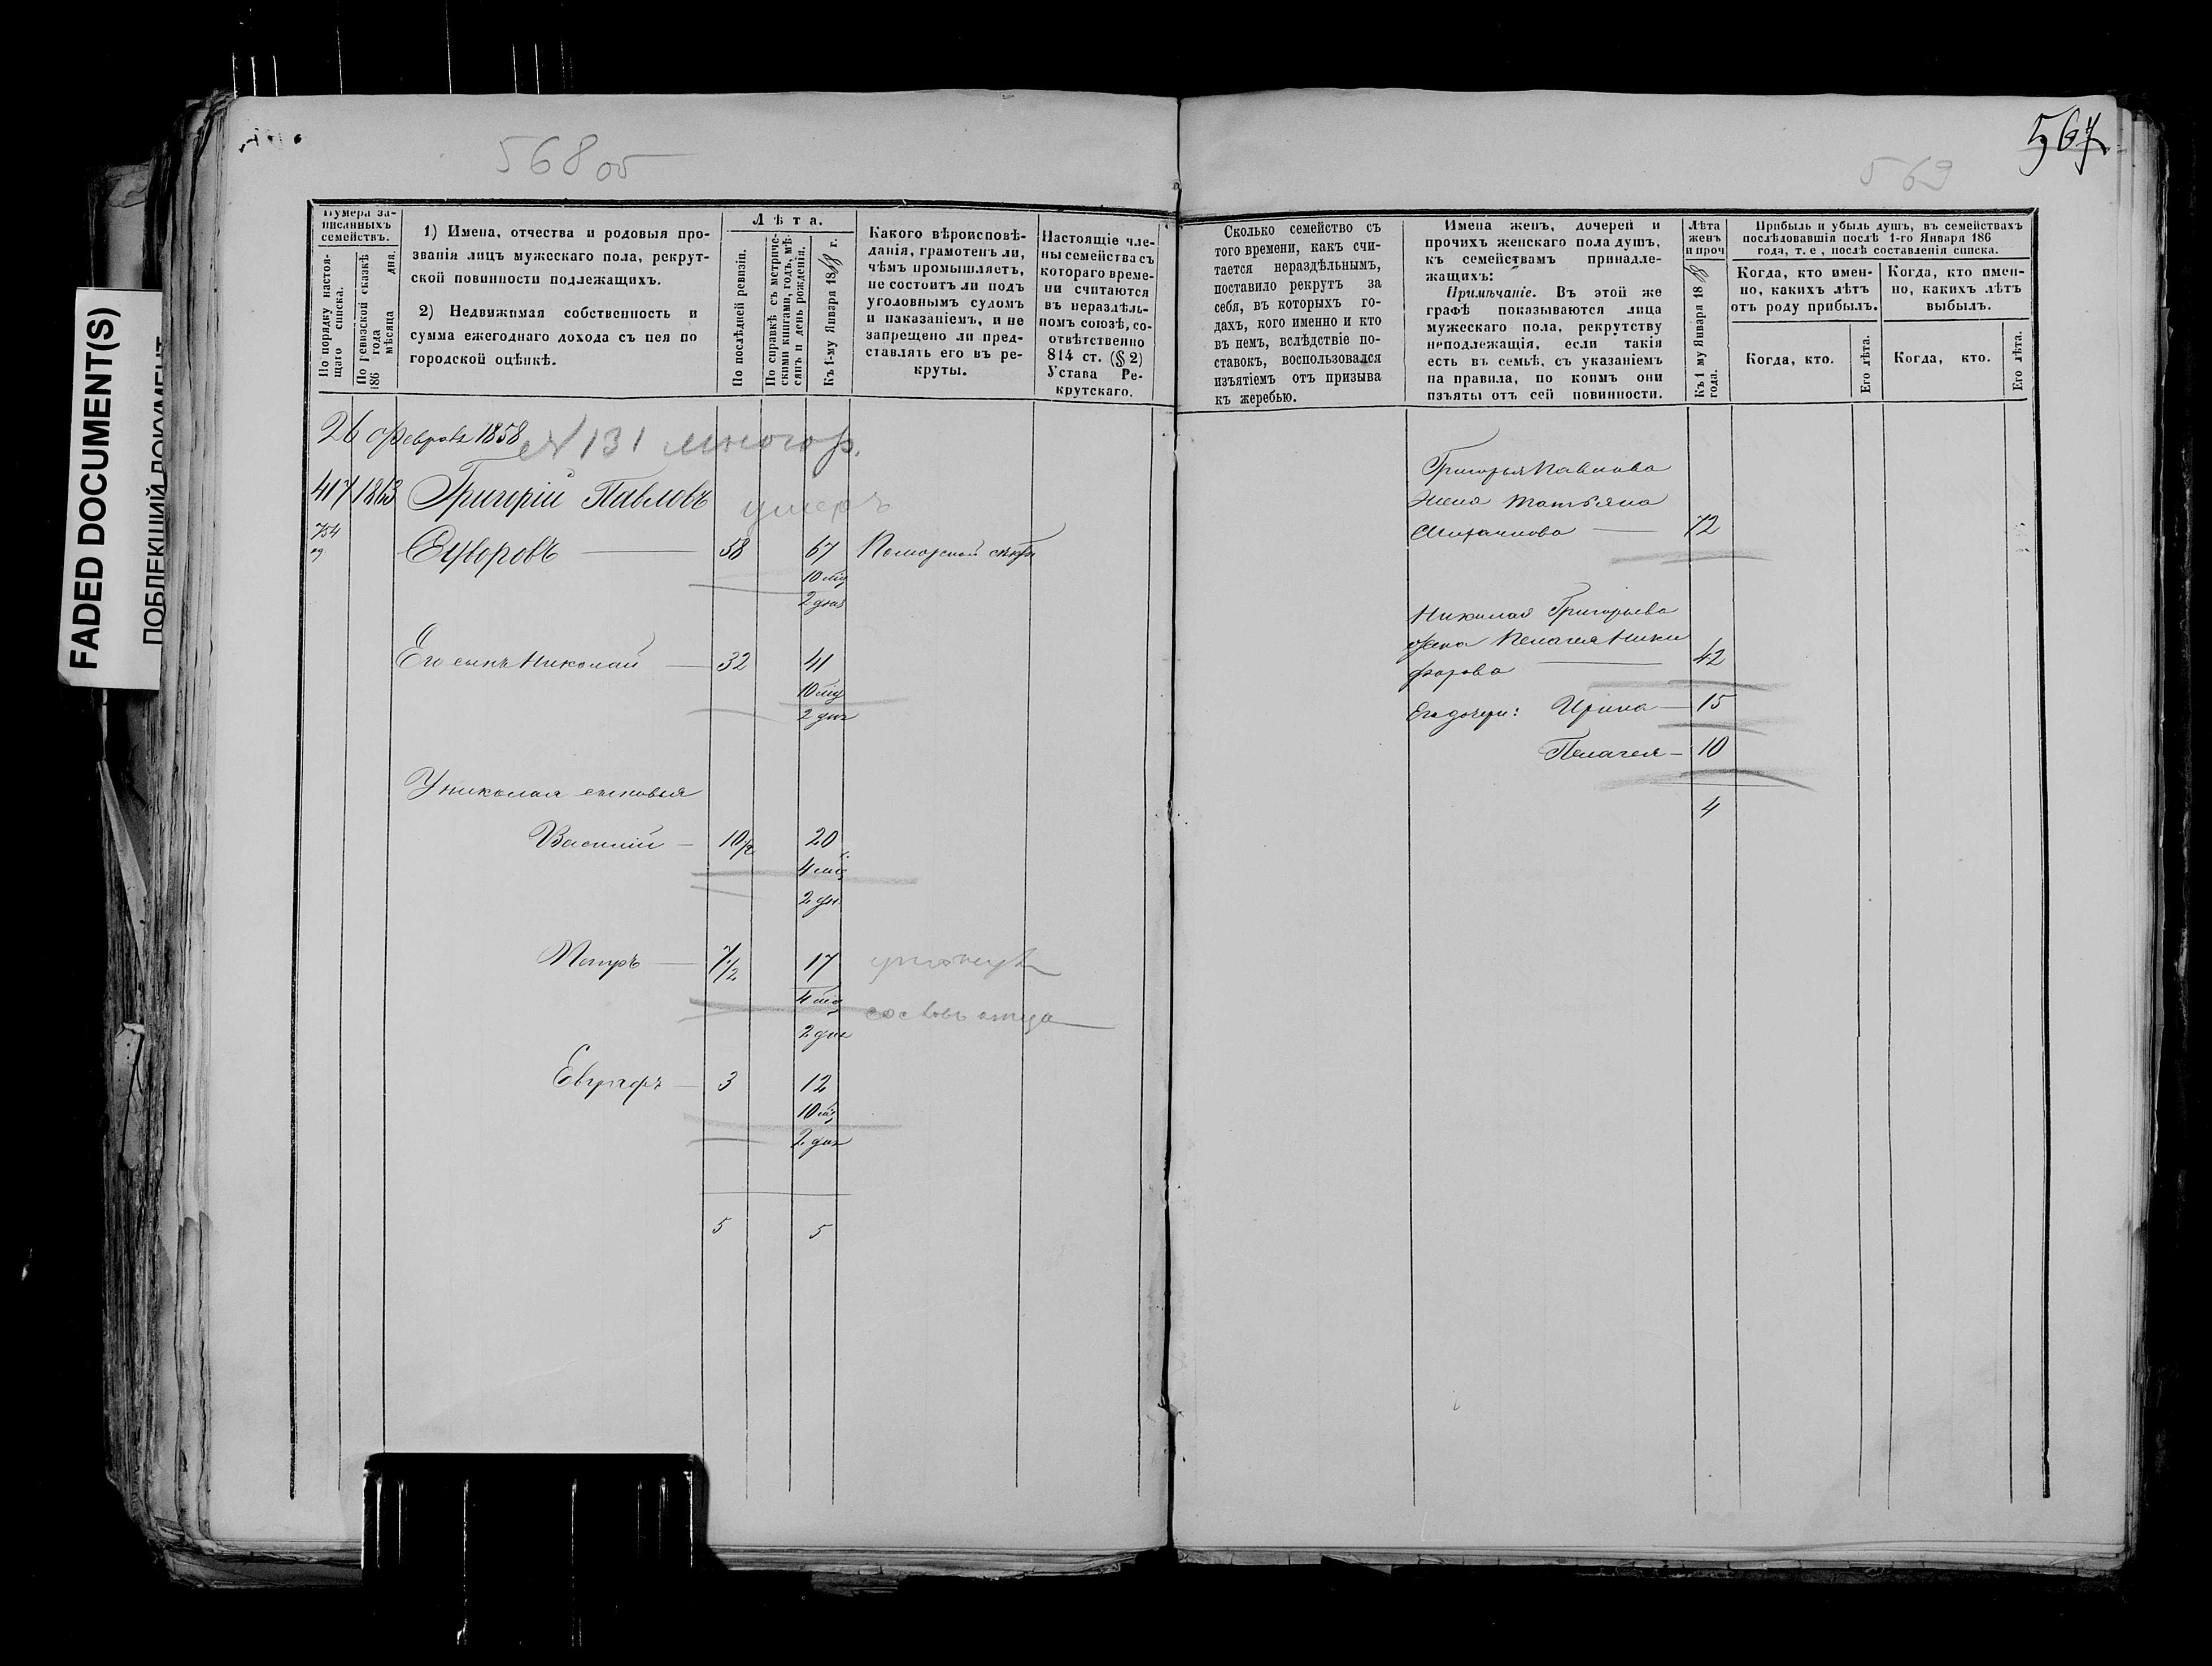 FADED DOCUMENT(S)
568 об
567
569
Нумера за-
писанныхъ
семействъ.
По порядку настоя-
щаго списка.
По ревизской сказкѣ
186 года
мѣсяца дня.
1) Имена, отчества и родовыя про-
званія лицъ мужескаго пола, рекрут-
ской повинности подлежащихъ.
2) Недвижимая собственность и
сумма ежегоднаго дохода съ нея по
городской оцѣнкѣ.
Лѣта.
По послѣдней ревизіи.
По справкѣ съ метриче-
скими книгами, годъ, мѣ-
сяцъ и день рожденія.
Къ 1-му Января 1868 г.
Какого вѣроисповѣ-
данія, грамотенъ ли,
чѣмъ промышляетъ,
не состоитъ ли подъ
уголовнымъ судомъ
и наказаніемъ, и не
запрещено ли пред-
ставлять его въ ре-
круты.
Настоящіе чле-
ны семейства съ
котораго време-
ни считаются
въ нераздѣль-
номъ союзѣ, со-
отвѣтственно
814 ст. (§ 2)
Устава Ре-
крутскаго.
Сколько семейство съ
того времени, какъ счи-
тается нераздѣльнымъ,
поставило рекрутъ за
себя, въ которыхъ го-
дахъ, кого именно и кто
въ немъ, вслѣдствіе по-
ставокъ, воспользовался
изъятіемъ отъ призыва
къ жеребью.
Имена женъ, дочерей и
прочихъ женскаго пола душъ,
къ семействамъ принадле-
жащихъ:
Примѣчаніе. Въ этой же
графѣ показываются лица
мужескаго пола, рекрутству
неподлежащія, если такія
есть въ семьѣ, съ указаніемъ
на правила, по коимъ они
изъяты отъ сей повинности.
Лѣта
женъ
и проч
Къ 1 му Января 1868
года.
Прибыль и убыль душъ, въ семействахъ
послѣдовавшія послѣ 1-го Января 186
года, т. е, послѣ составленія списка.
Когда, кто имен-
но, какихъ лѣтъ
отъ роду прибылъ.
Когда, кто имен-
но, какихъ лѣтъ
выбылъ.
Когда, кто.
Его лѣта.
Когда, кто.
Его лѣта.
26 февраля 1858
N 131
417 1863 Григорій Павловъ
умеръ
754
Суворовъ — 58 67 Поморской секты
10 міц
2 дня
Его сынъ Николай — 32 41
10 міц
2 дня
У Николая сыновья
Василій — 10 1/2 20
4 міц
2 дн.
Петръ — 7 1/2 17
4 міц
2 дня
отца
Евграфъ — 3 12
10 міц
2 дня
5 5
Григорья Павлова
жена Татьяна
— 72
Николая Григорьева
жена Пелагея Ники
форова — 42
Его дочери: Ирина — 15
Пелагея — 10
4